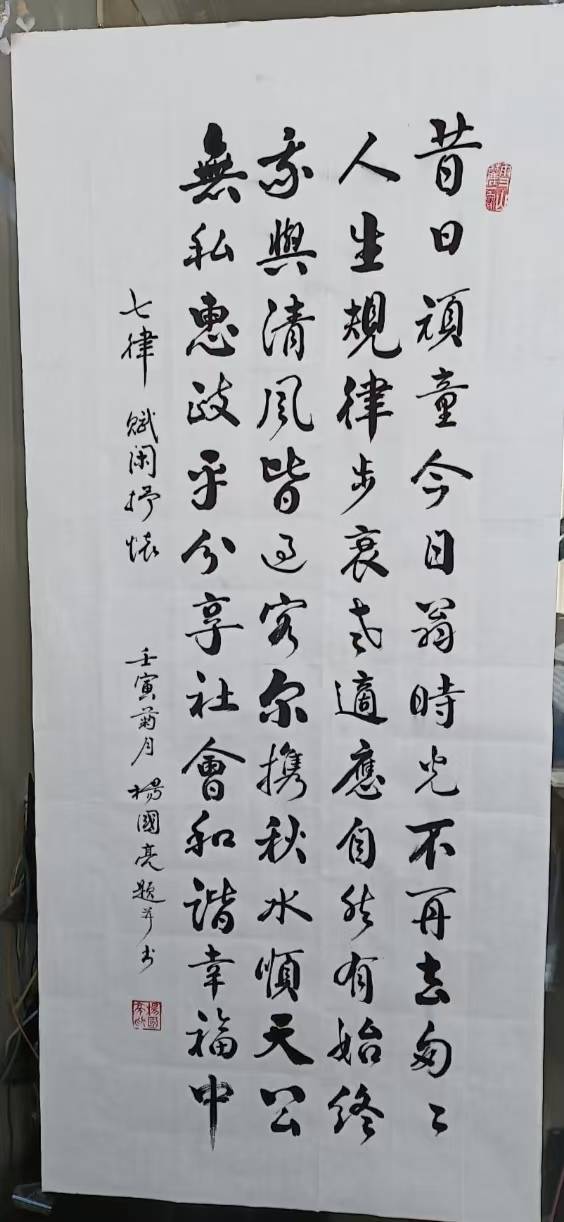 昔日頑童今日翁時光不再去匆々
人生規律步衰老適應自然有始終
我與清風皆過客尔携秋水順天公
無私惠政平分享社會和諧幸福中
七律 賦闲抒懷 壬寅菊月楊國亮題并书